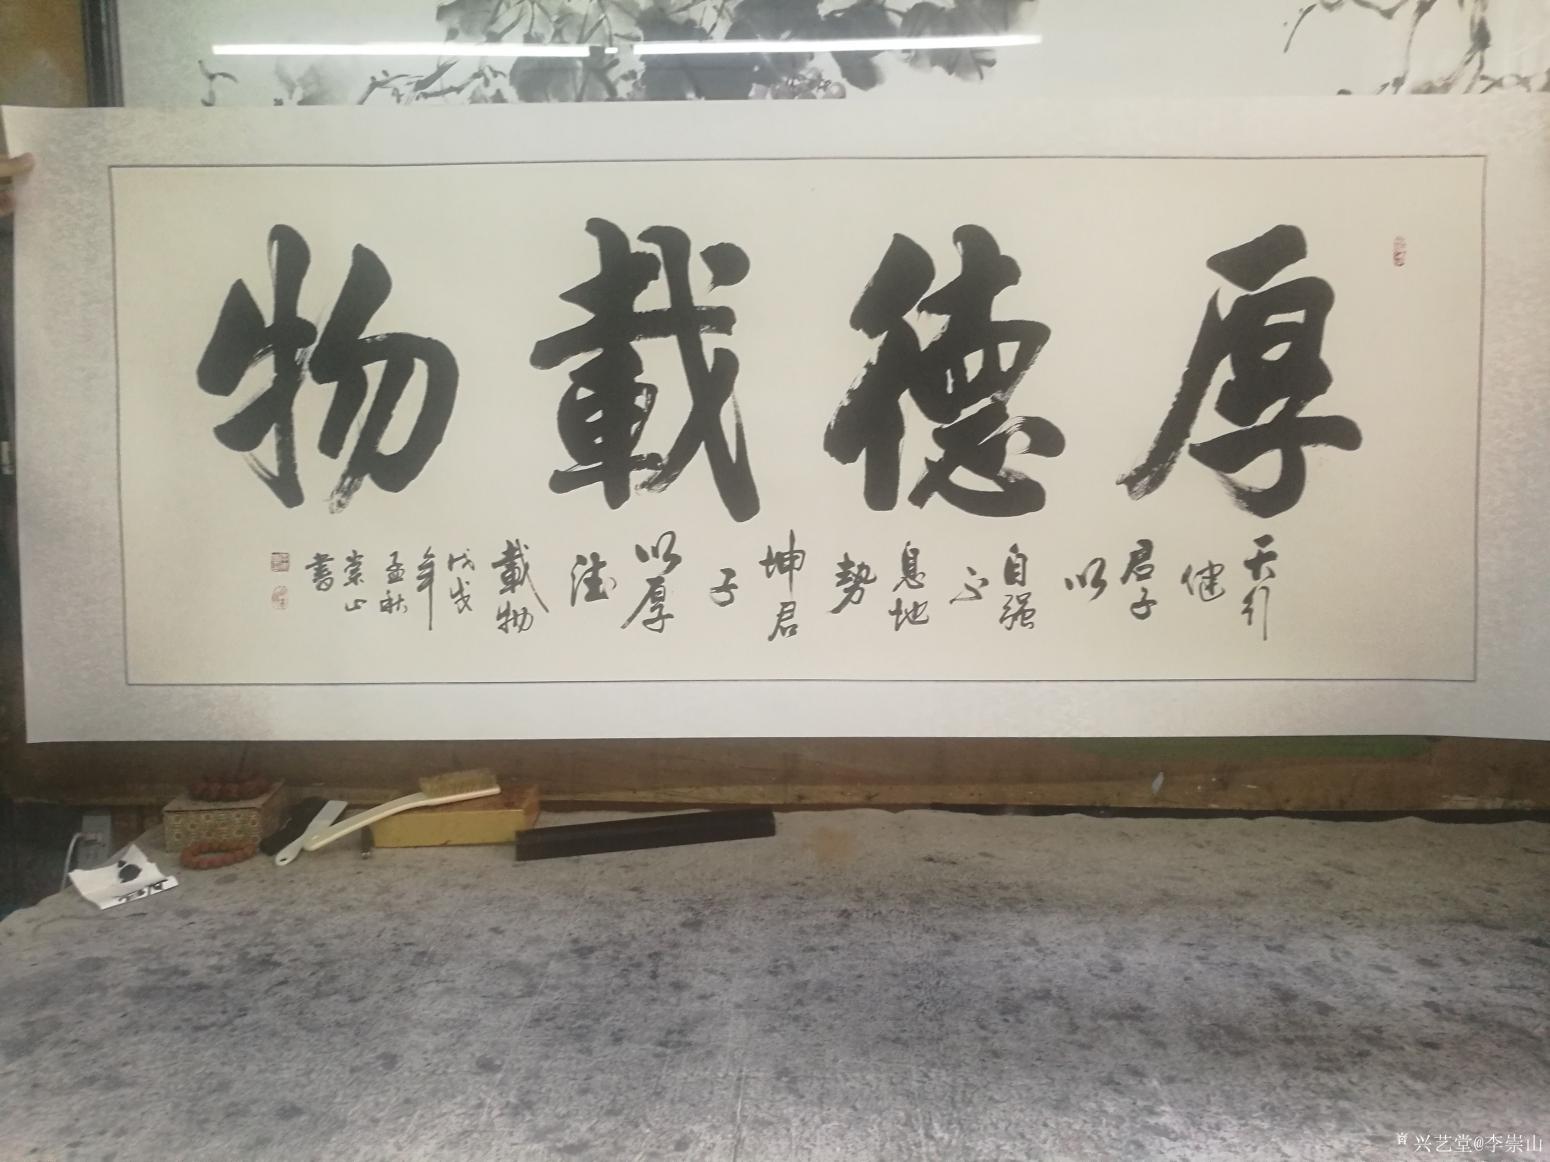 厚德載物
天行
健
君子
以
自强
不
息地
势
坤君
子
以厚
德
載物
戊戌
年
孟秋
崇山
書
兴艺堂@李崇山